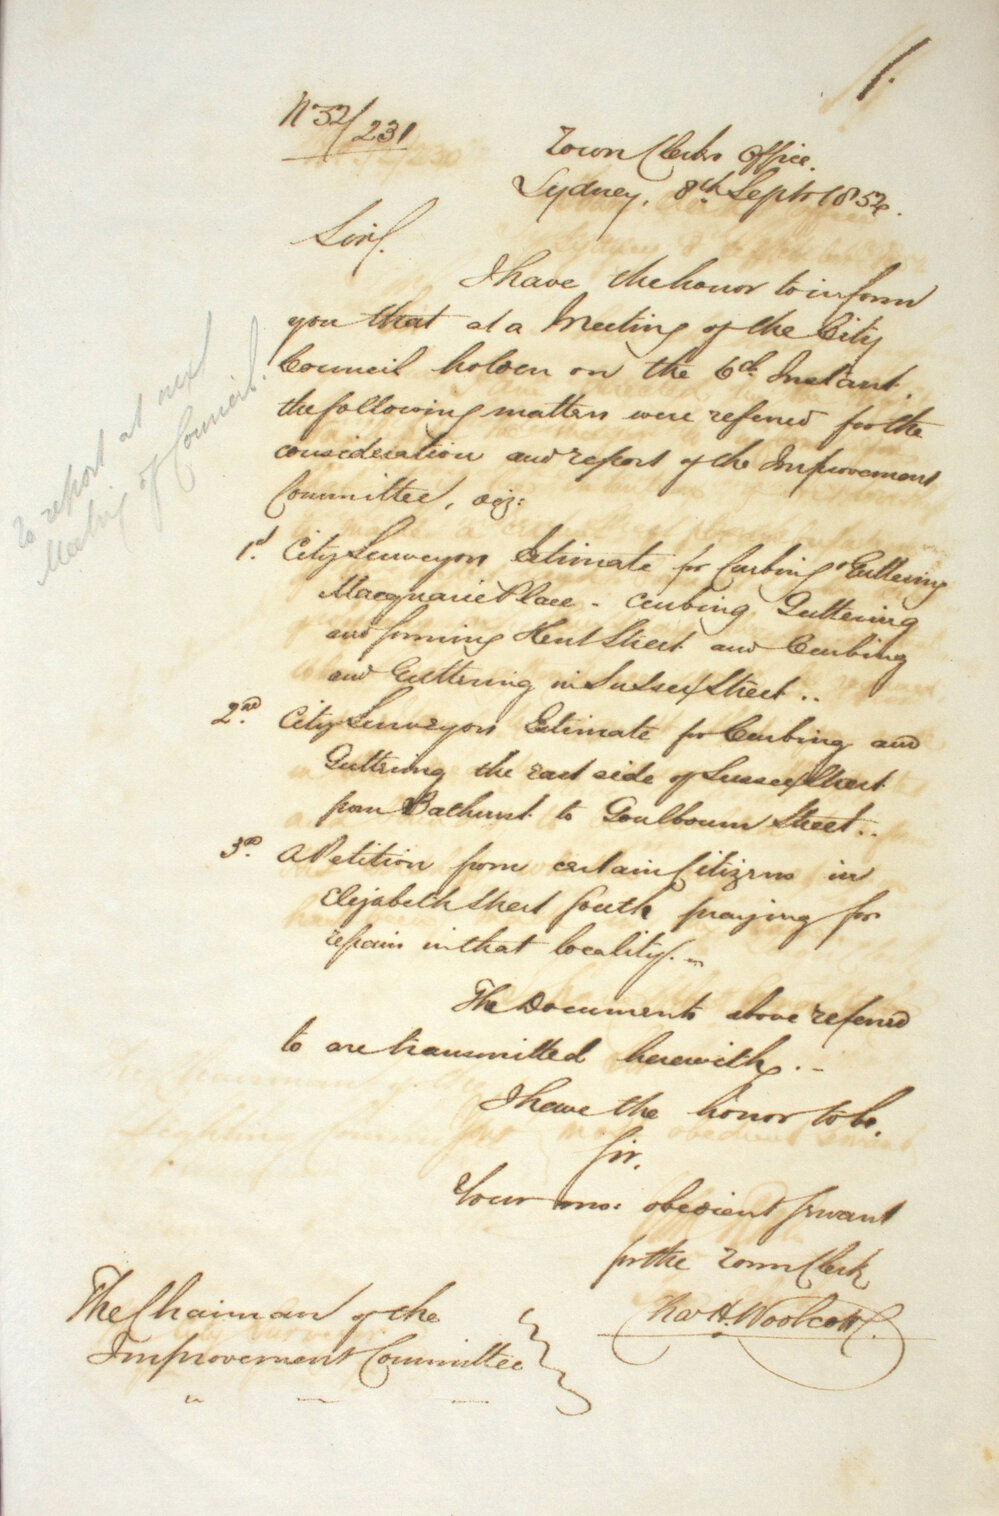 1.
No 52/231
Town Clerks Office.
Sydney, 8th Septr 1852.
Sir,
I have the honor to inform
you that at a Meeting of the City
Council holden on the 6th Instant
the following matters were referred for the
consideration and report of the Improvement
Committee, viz:
1st. City Surveyors Estimate for Curbing & Guttering
Macquarie Place - Curbing Guttering
and forming Kent Street and Curbing
and Guttering in Sussex Street ..
2nd. City Surveyors Estimate for Curbing and
Guttering the east side of Sussex Street
from Bathurst to Goulbourn Street ..
3rd. A Petition from certain Citizens in
Elizabeth Street South praying for
repairs in that locality. -
The Documents above referred
to are transmitted herewith. -
I have the honor to be,
Sir,
Your mo: obedient Servant
for the Town Clerk
Chas H. Woolcott
The Chairman of the
Improvement Committee
To report at next
Meeting of Council.